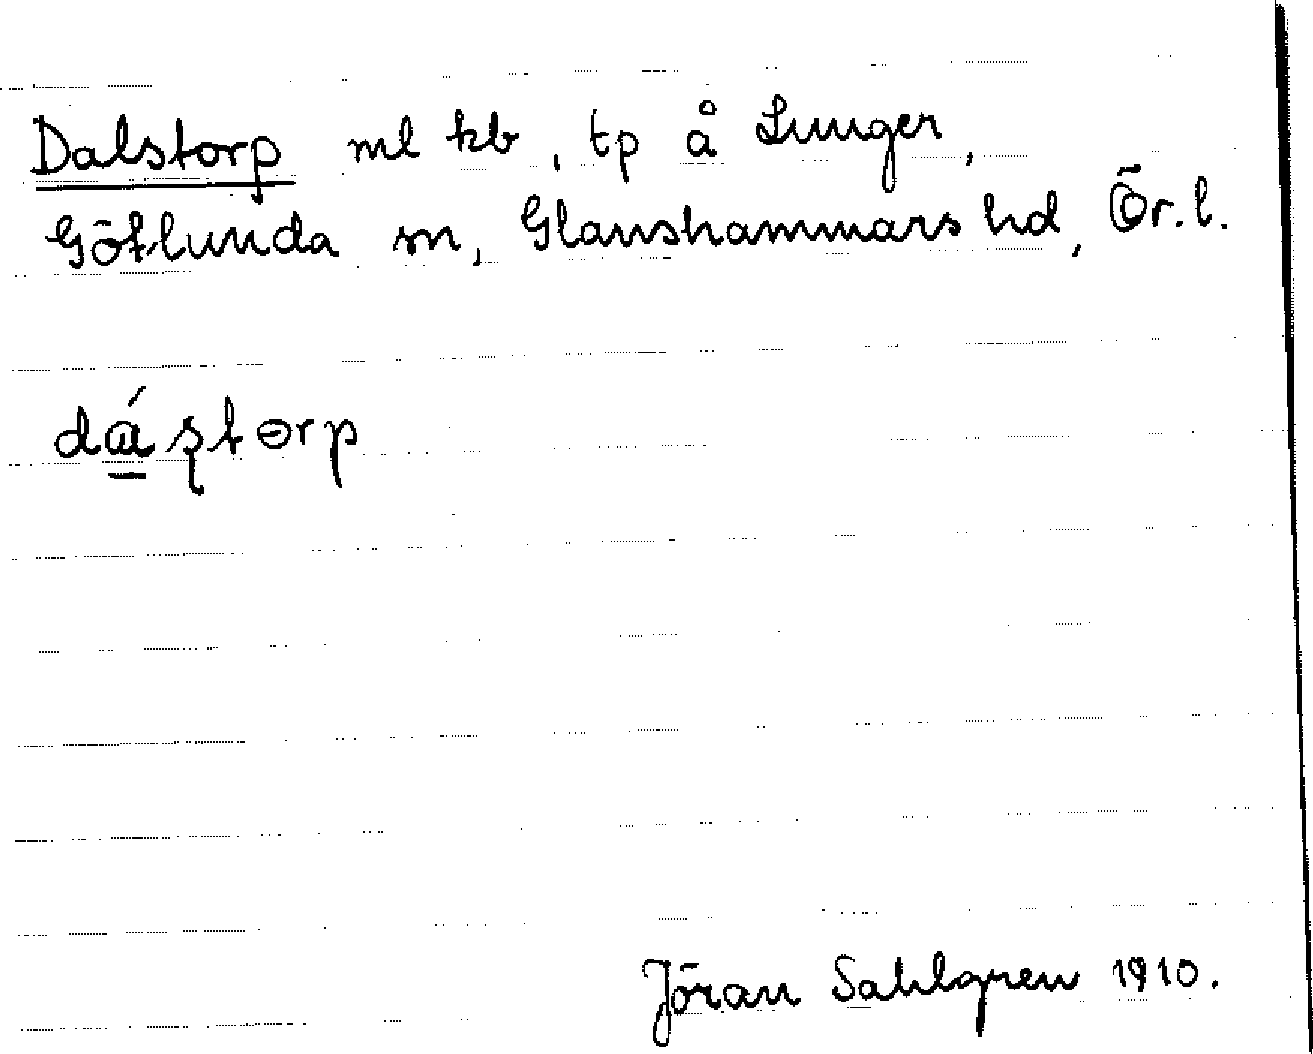 Dalstorp ml kb, tp å Lunger,
Götlunda sn, Glanshammars hd, Ör. l.
dá̱ʂtɵrp
Jöran Sahlgren 1910.